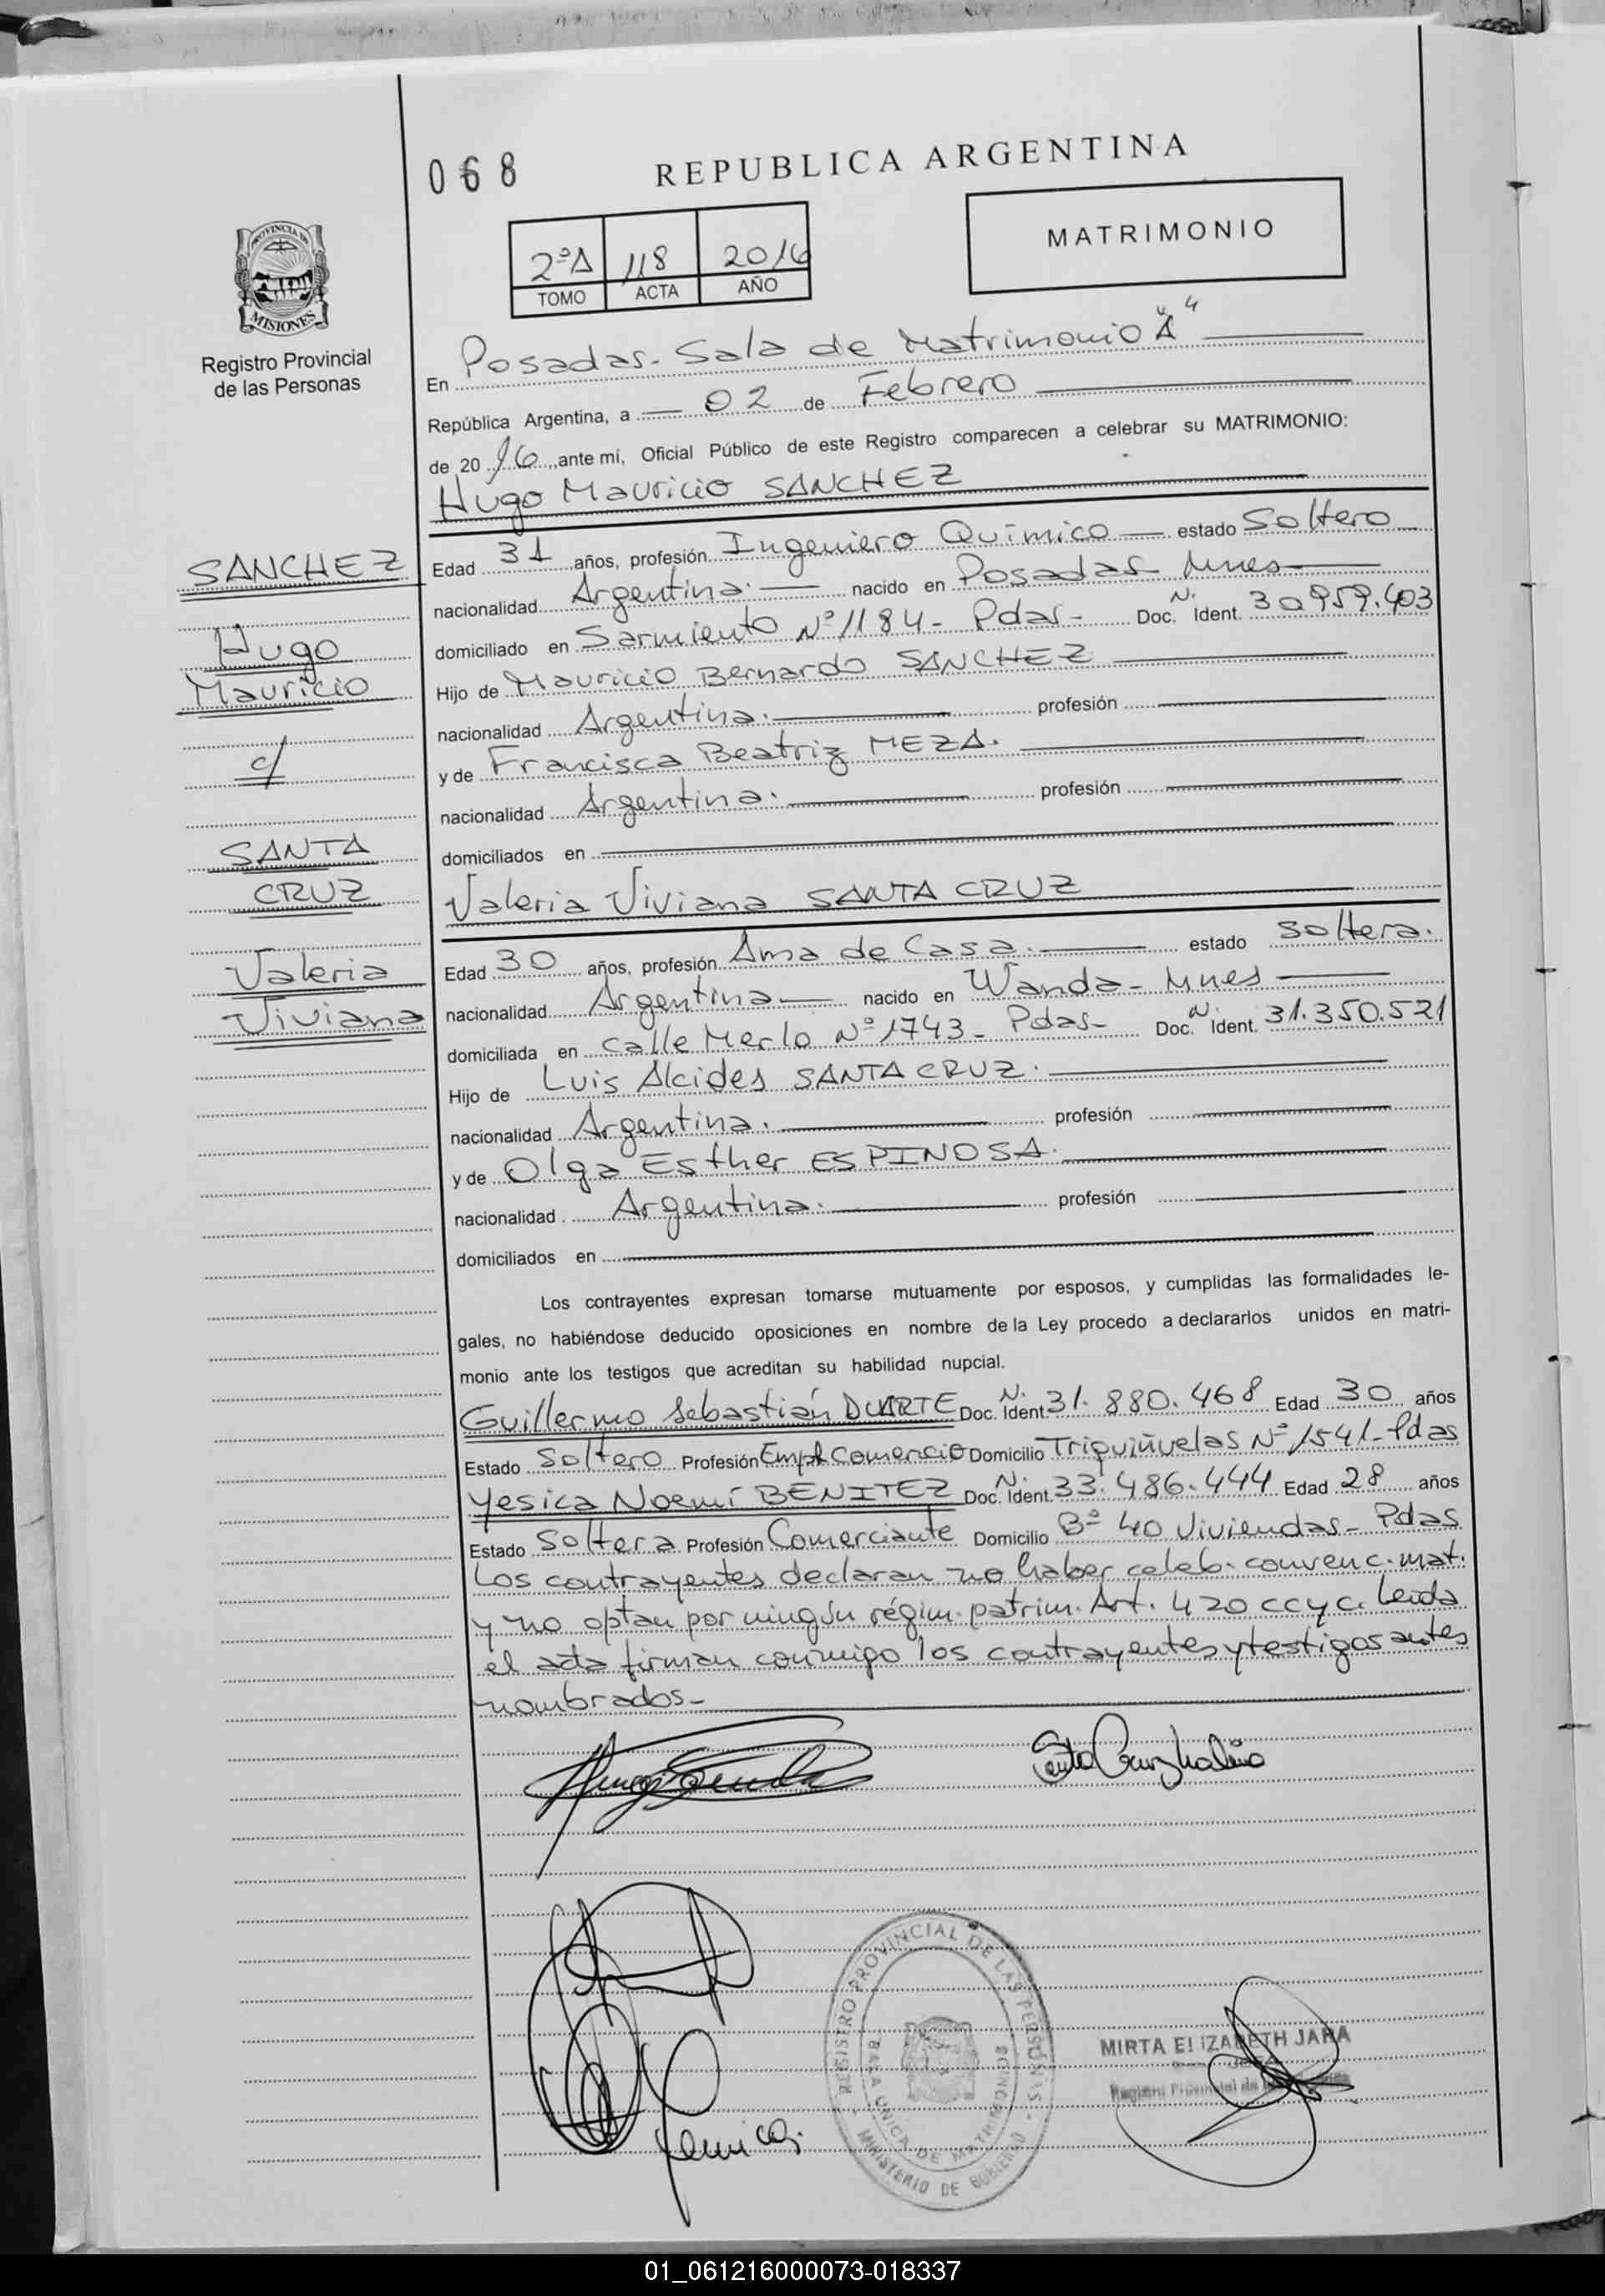 068
REPUBLICA ARGENTINA
PROVINCIA DE
MISIONES
Registro Provincial
de las Personas
2ºA 118 2016
TOMO ACTA AÑO
MATRIMONIO
En Posadas - Sala de Matrimonio "A"
República Argentina, a 02 de Febrero
de 2016, ante mí, Oficial Público de este Registro comparecen a celebrar su MATRIMONIO:
Hugo Mauricio SANCHEZ
SANCHEZ
Hugo
Mauricio
c/
SANTA
CRUZ
Valeria
Viviana
Edad 31 años, profesión Ingeniero Químico estado Soltero
nacionalidad Argentina. nacido en Posadas Mnes
domiciliado en Sarmiento Nº 1184 - Pdas - Doc. N. Ident. 30.959.403
Hijo de Mauricio Bernardo SANCHEZ
nacionalidad Argentina. profesión
y de Francisca Beatriz MEZA.
nacionalidad Argentina. profesión
domiciliados en
Valeria Viviana SANTA CRUZ
Edad 30 años, profesión Ama de Casa. estado soltera.
nacionalidad Argentina nacido en Wanda - Mnes
domiciliada en calle Merlo Nº 1743 - Pdas - Doc. N. Ident. 31.350.521
Hijo de Luis Alcides SANTA CRUZ.
nacionalidad Argentina. profesión
y de Olga Esther ESPINOSA.
nacionalidad Argentina. profesión
domiciliados en
Los contrayentes expresan tomarse mutuamente por esposos, y cumplidas las formalidades le-
gales, no habiéndose deducido oposiciones en nombre de la Ley procedo a declararlos unidos en matri-
monio ante los testigos que acreditan su habilidad nupcial.
Guillermo Sebastián DUARTE Doc. N. Ident. 31.880.468 Edad 30 años
Estado Soltero Profesión Empl. Comercio Domicilio Triquiñuelas Nº 1541 - Pdas
Yesica Noemí BENITEZ Doc. N. Ident. 33.486.444 Edad 28 años
Estado Soltera Profesión Comerciante Domicilio Bº 40 Viviendas - Pdas
Los contrayentes declaran no haber celeb. convenc. mat.
y no optan por ningún régim. patrim. Art. 420 ccyc. Leida
el acta firman conmigo los contrayentes y testigos antes
nombrados -
REGISTRO PROVINCIAL DE LAS PERSONAS
SALA UNICA DE MATRIMONIOS
MINISTERIO DE GOBIERNO
MIRTA ELIZABETH JARA
01_061216000073-018337